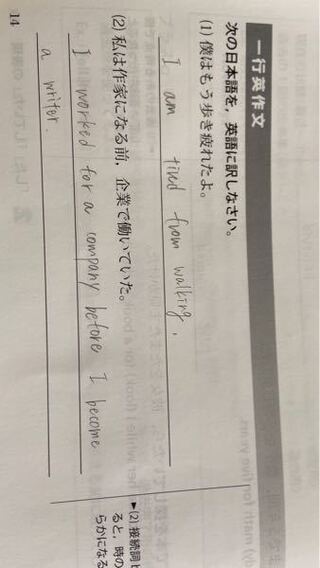 一行英作文
次の日本語を，英語に訳しなさい。
(1) 僕はもう歩き疲れたよ。
I am tired from walking.
(2) 私は作家になる前，企業で働いていた。
I worked for a company before I become
a writer.
▶(2) 接続詞
ると，時の
らかになる
14